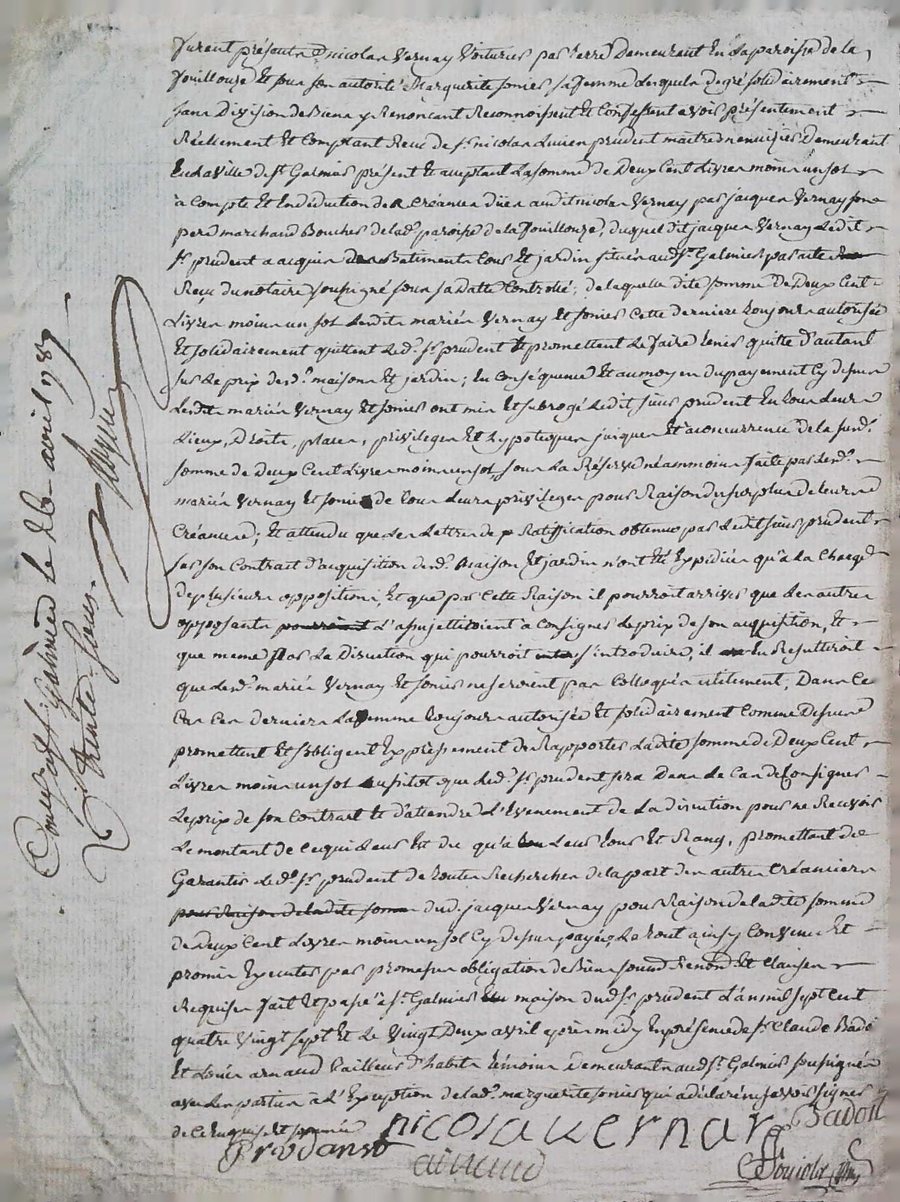 furent présents Sr nicolas Vernay Voiturier par terre Demeurant En la paroisse de la
fouillouze Et sous son autorité Marguerite sonier, sa femme lesquels de gré solidairement
sans Division de Biens y Renonçant Reconnoissent Et Confessent avoir présentement
Réellement Et Comptant Reçu de sr nicolas Lucien prudent maitre menuisier Demeurant
En la ville de st Galmier présent Et acceptant La somme de Deux Cent Livres moins un sol
à Compte Et En déduction de Créances düe audit nicolas Vernay par jacques Vernay son
pere marchand Boucher de lad. paroisse de la fouillouze, duquel dit jacques Vernay Ledit
sr prudent a acquis des Batiments Cour Et jardin situés aud. st Galmier par acte
Reçu du notaire soussigné sous sa datte Controllé; de laquelle dite somme de Deux Cent
Livres moins un sol Lesdits mariés Vernay Et sonier Cette derniere toujours autorisée
Et solidairement quittent Led. sr prudent Et promettent Le faire tenir quitte d'autant
sur Le prix desd. maisons Et jardin; En Conséquence Et au moyen du payement Cy dessus
Lesdits mariés Vernay Et sonier ont mis Et subrogé Ledit sieur prudent En tous Leurs
Lieux, Droits, places, privileges Et hypoteques jusques Et a concurrence de la susd.
somme de Deux Cent Livres moins un sol sous La Réserve néammoins faite par lesd.
mariés Vernay Et sonier de tous Leurs privileges pour Raison du surplus de leurs
Créances; Et attendu que Les Lettres de Ratiffication obtenues par Ledit sieur prudent
sur son Contrat d'acquisition desd. Maison Et jardin n'ont Eté Expédiées qu'a La Charge
de plusieurs oppositions, Et que par Cette Raison il pourroit arriver que les autres
opposants pourroient L'assujettiroient a Consigner Le prix de son acquisition, Et
que meme par La Discution qui pourroit s'introduire, il En Resulteroit
que Lesd. mariés Vernay Et sonier ne seroient pas Colloqués utilement, Dans Ce
Cas Ces derniers La femme toujours autorisée Et solidairement Comme Dessus
promettent Et s'obligent Expressement de Rapporter Ladite somme de Deux Cent
Livres moins un sol aussitot que Led. sr prudent sera Dans Le Cas de Consigner
Le prix de son Contrat Et d'atendre L'Evenement de La discution pour ne Recevoir
Le montant de Ce qui Leur Est du qu'a Leur tour Et Rang, promettant de
Garantir Led. sr prudent de toutes Recherches de la part des autres Créanciers
pour Raison de ladite somme dud. jacques Vernay pour Raison de ladite somme
de Deux Cent Livres moins un sol Cy dessus payée, Le tout ainsy Convenu Et
promis Executer par promesse obligation de Biens soumis Renonc. Et Clauses
Requises fait Et passé a st Galmier maison dud. sr prudent L'an mil sept Cent
quatre Vingt sept Et Le Vingt Deux avril après midy En présence de sr Claude Badol
Et Louis arnaud tailleur d'habits témoins Demeurants aud. st Galmier soussignés
avec Les parties à L'Exception de lad. marguerite sonier qui a déclaré ne savoir signer
de Ce Enquis Et sommée
nicola vernay Badol
Prudant
arnaud
Controllé à st Galmier le 26 avril 1787
Reçu trente sous